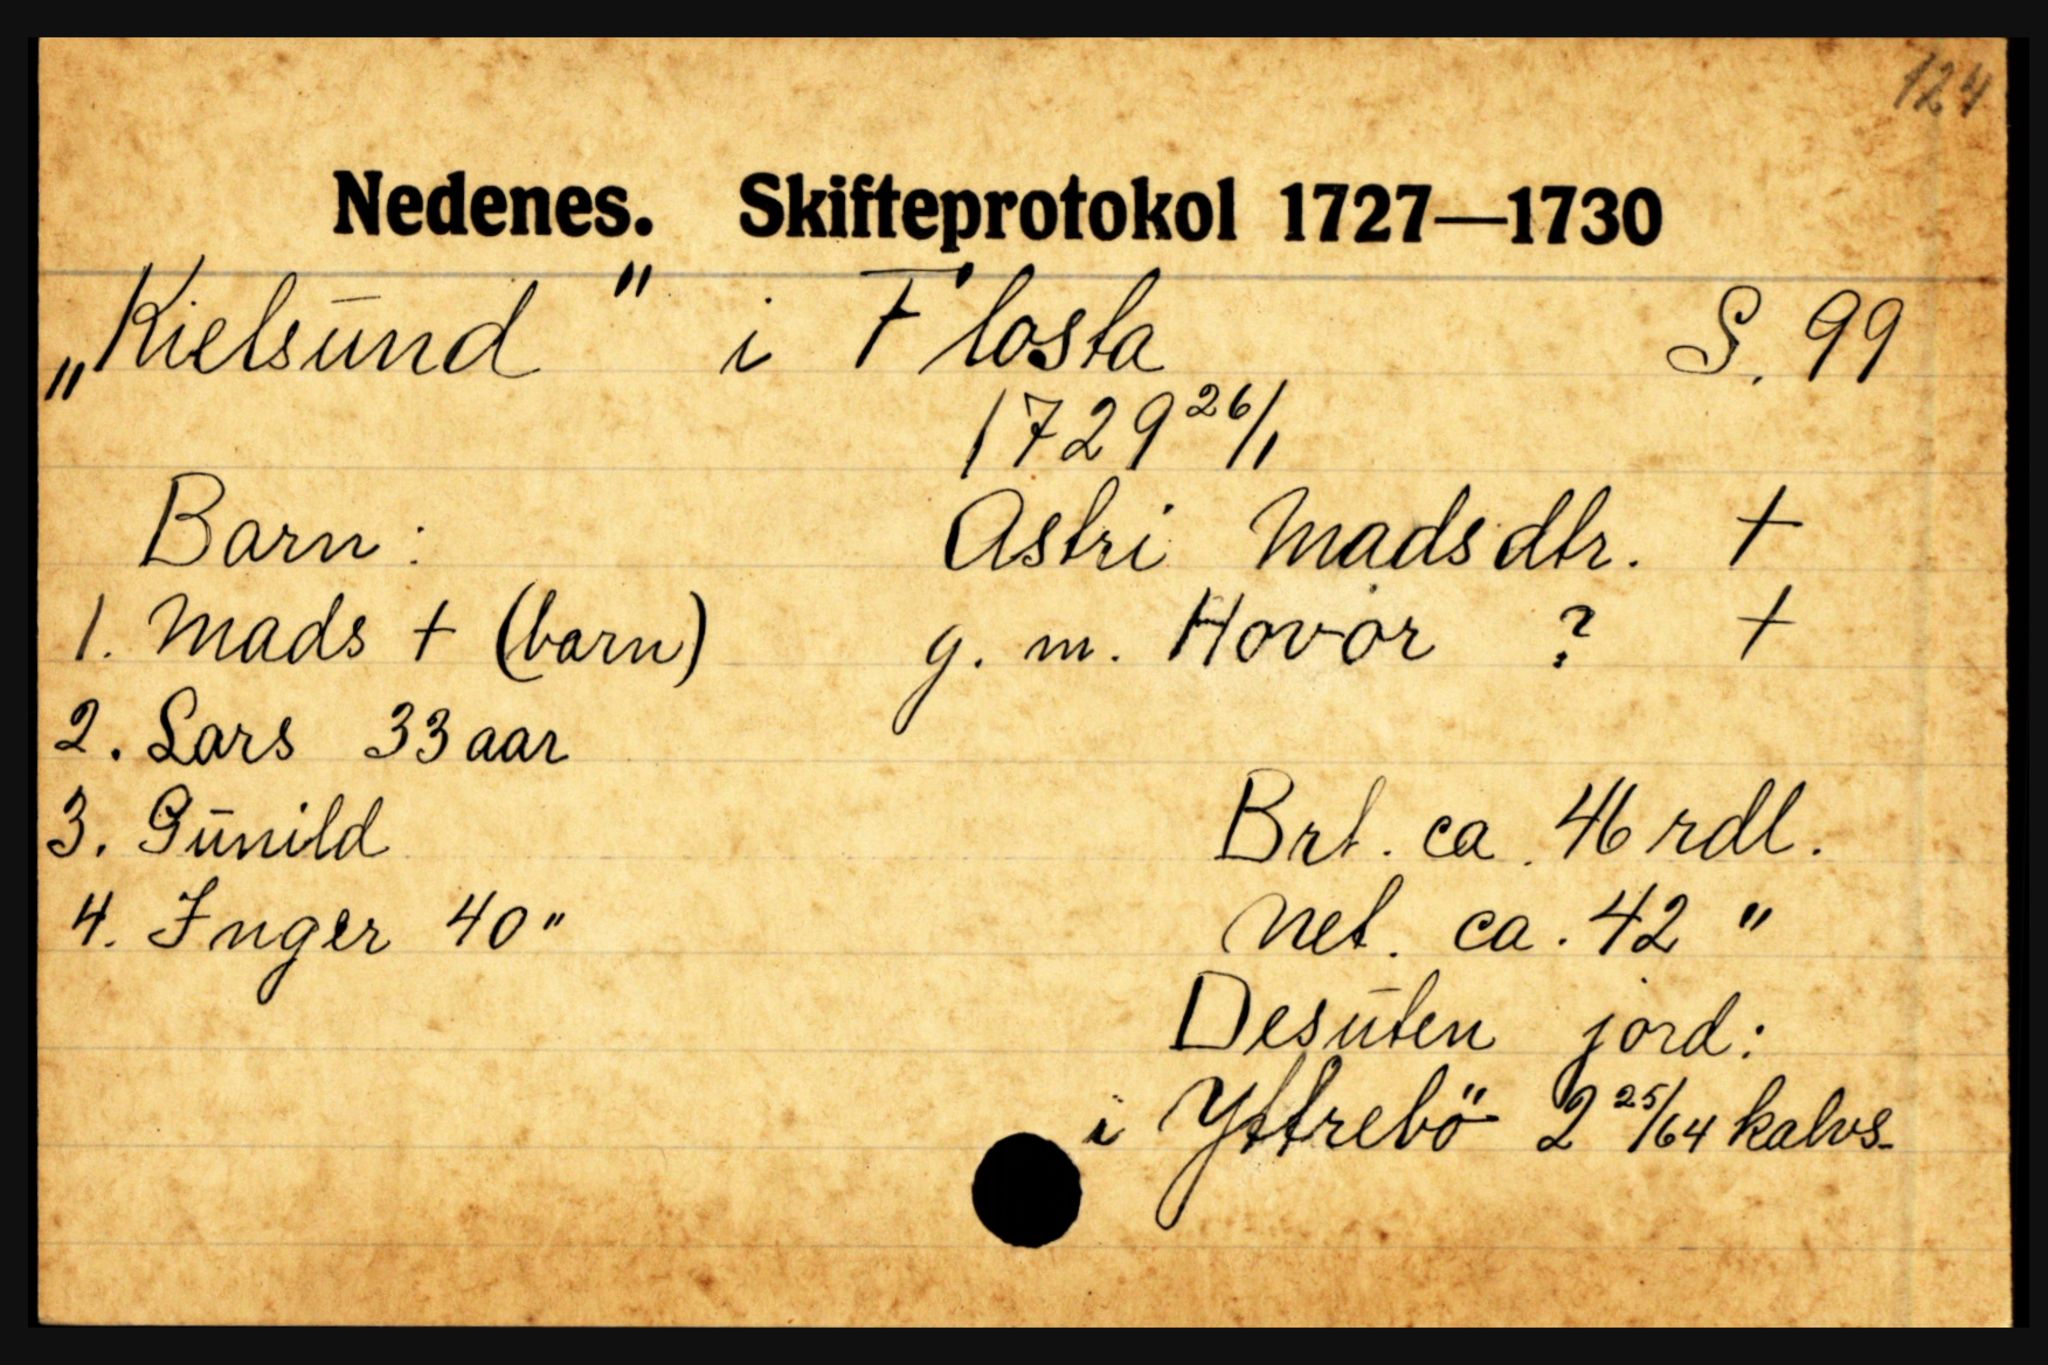 124
Nedenes. Skifteprotokol 1727—1730
„Kielsund" i Flosta S. 99
1729 26/1
Barn: Astri Madsdtr. +
1. Mads + (barn) g. m. Hovor ? +
2. Lars 33 aar
3. Gunild Brt. ca. 46 rdl.
4. Inger 40 " Net. ca. 42 "
Desuten jord:
i Yttrebö 2 25/64 kalvs.